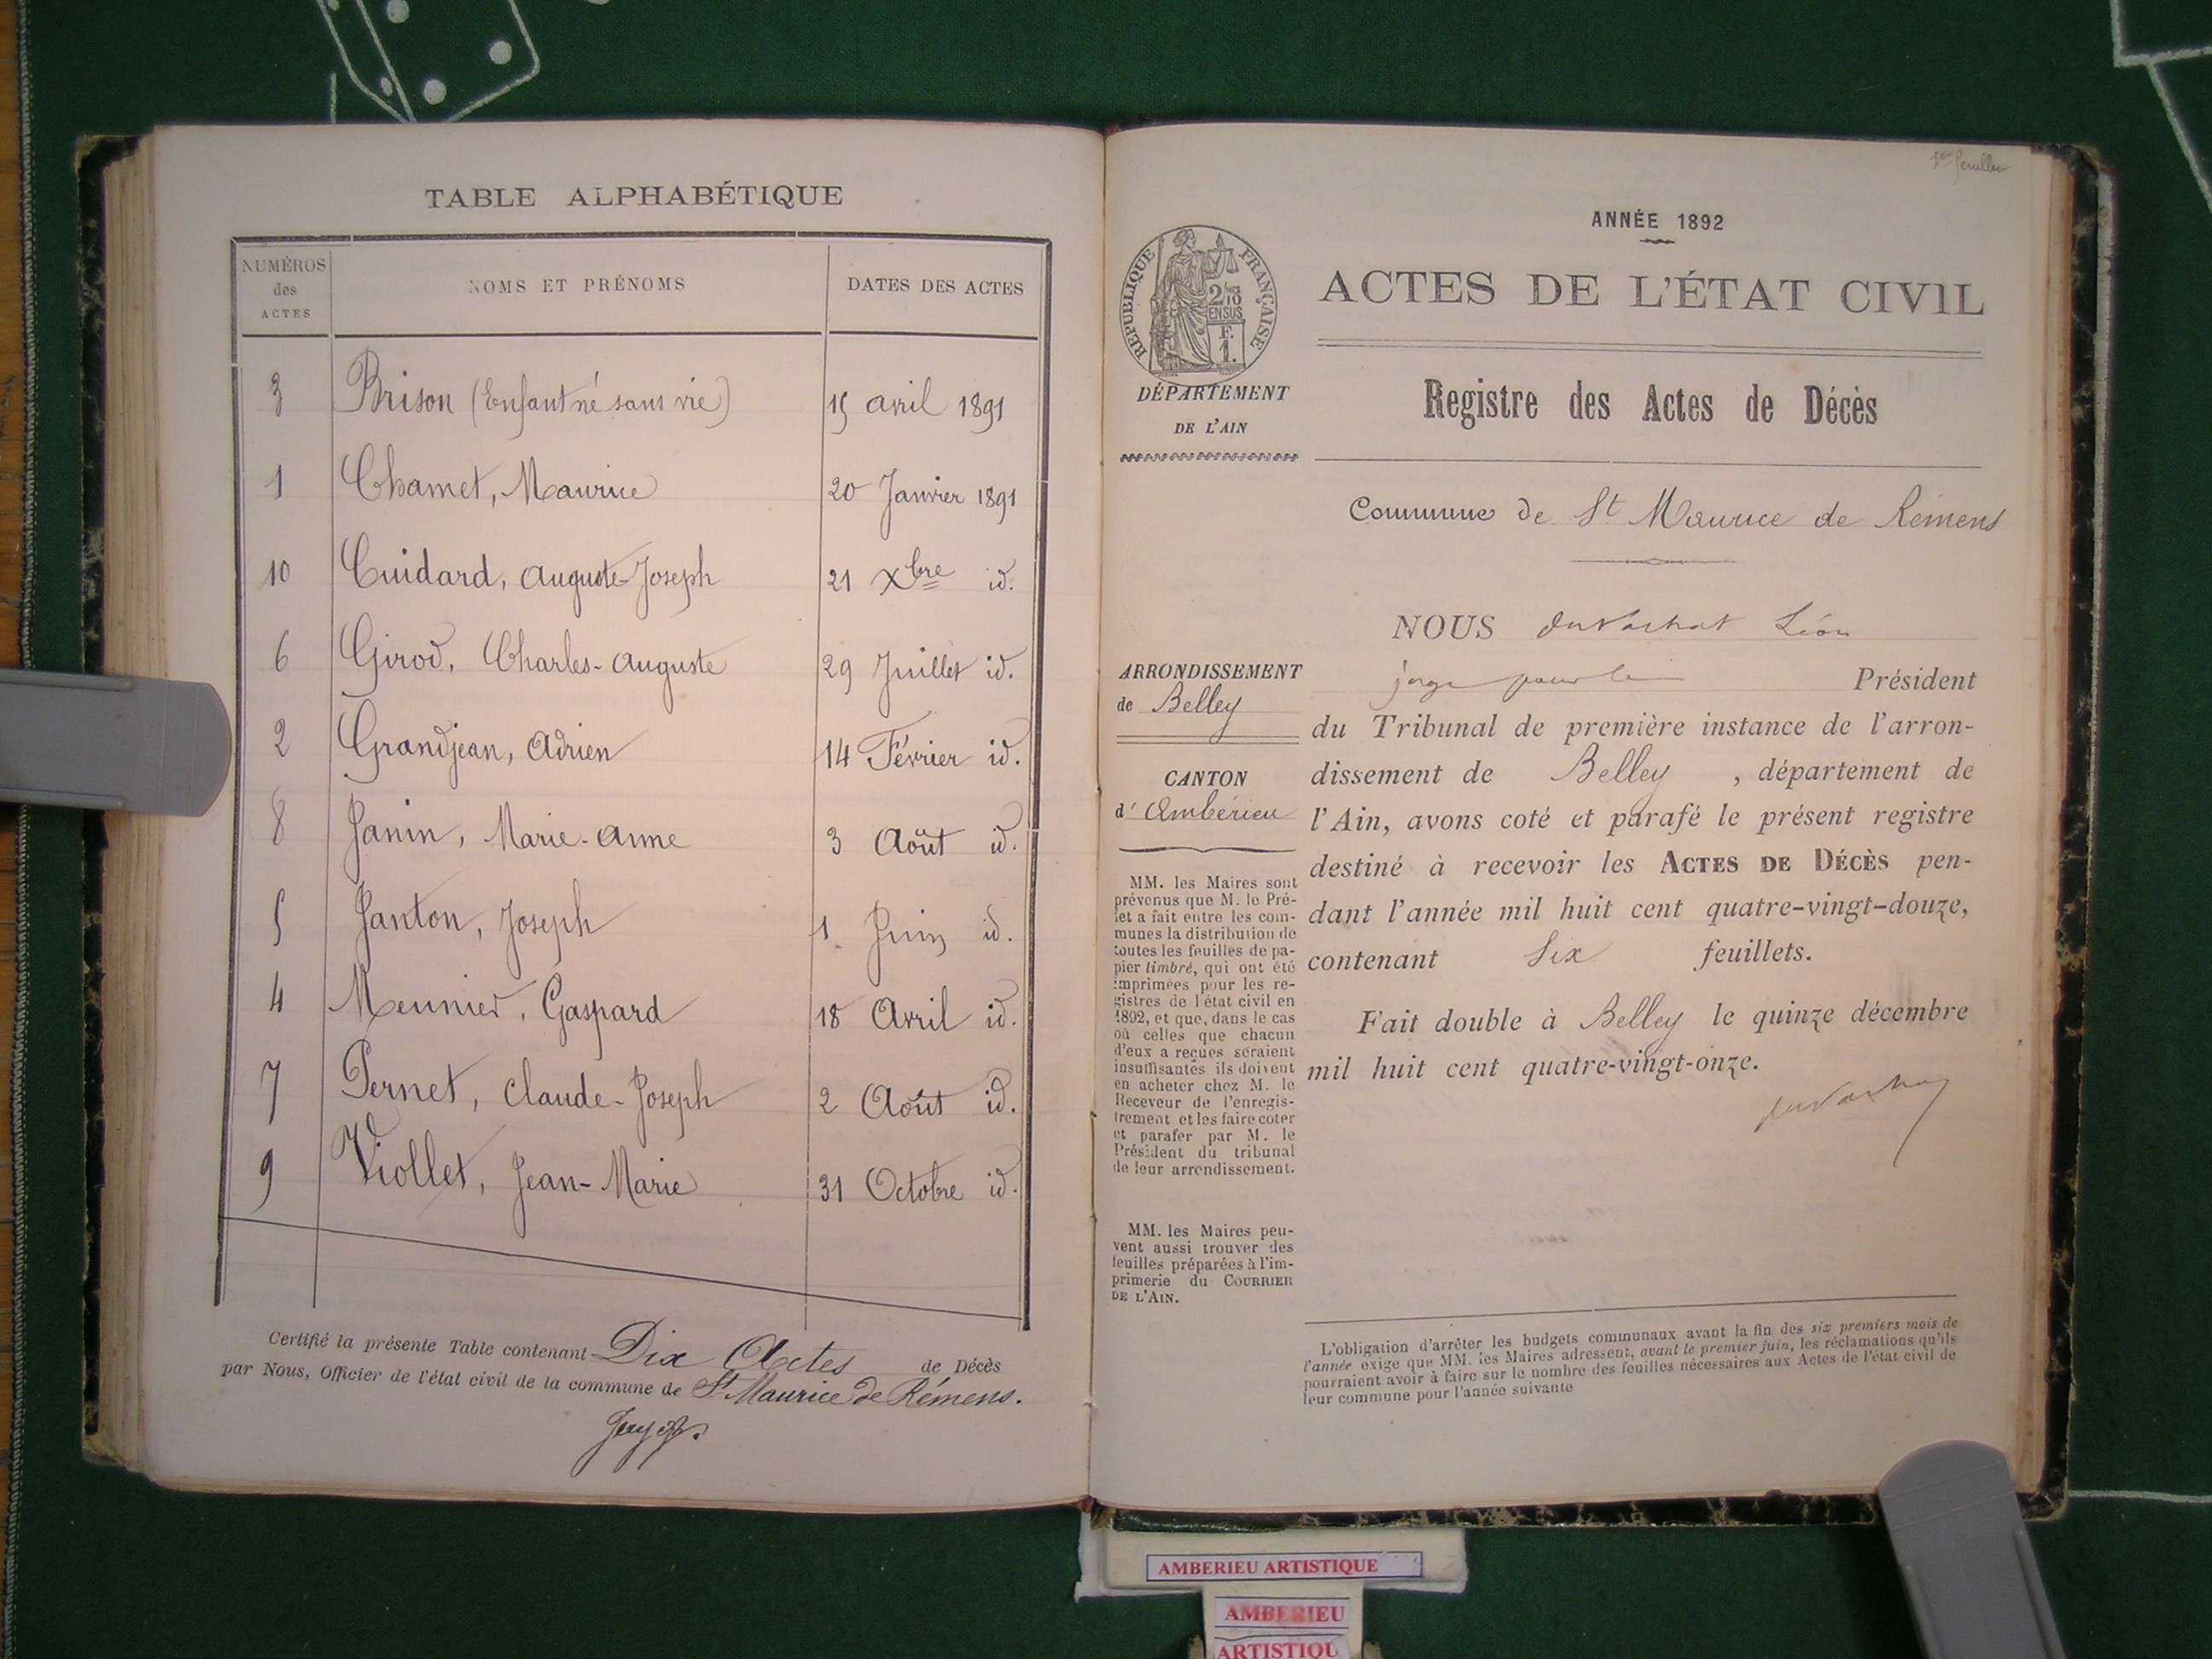 TABLE ALPHABÉTIQUE
NUMÉROS des ACTES NOMS ET PRÉNOMS DATES DES ACTES
3 Brison (Enfant né sans vie) 15 avril 1891
1 Chamet, Maurice 20 Janvier 1891
10 Cuidard, Auguste-Joseph 21 Xbre id.
6 Girod, Charles-Auguste 29 Juillet id.
2 Grandjean, Adrien 14 Février id.
8 Janin, Marie-Anne 3 Août id.
5 Janton, Joseph 1 Juin id.
4 Meunier, Gaspard 18 Avril id.
7 Pernet, Claude-Joseph 2 Août id.
9 Viollet, Jean-Marie 31 Octobre id.
Certifié la présente Table contenant Dix Actes de Décès
par Nous, Officier de l'état civil de la commune de St Maurice de Rémens.
ANNÉE 1892
RÉPUBLIQUE FRANÇAISE
2/10 EN SUS
F. 1.
ACTES DE L'ÉTAT CIVIL
DÉPARTEMENT
DE L'AIN
Registre des Actes de Décès
Commune de St Maurice de Rémens
ARRONDISSEMENT
de Belley
CANTON
d'Ambérieu
MM. les Maires sont
prévenus que M. le Pré-
fet a fait entre les com-
munes la distribution de
toutes les feuilles de pa-
pier timbré, qui ont été
imprimées pour les re-
gistres de l'état civil en
1892, et que, dans le cas
où celles que chacun
d'eux a reçues seraient
insuffisantes ils doivent
en acheter chez M. le
Receveur de l'enregis-
trement et les faire coter
et parafer par M. le
Président du tribunal
de leur arrondissement.
MM. les Maires peu-
vent aussi trouver des
feuilles préparées à l'im-
primerie du COURRIER
DE L'AIN.
NOUS Léon
juge pour le Président
du Tribunal de première instance de l'arron-
dissement de Belley, département de
l'Ain, avons coté et parafé le présent registre
destiné à recevoir les ACTES DE DÉCÈS pen-
dant l'année mil huit cent quatre-vingt-douze,
contenant Six feuillets.
Fait double à Belley le quinze décembre
mil huit cent quatre-vingt-onze.
L'obligation d'arrêter les budgets communaux avant la fin des six premiers mois de
l'année exige que MM. les Maires adressent, avant le premier juin, les réclamations qu'ils
pourraient avoir à faire sur le nombre des feuilles nécessaires aux Actes de l'état civil de
leur commune pour l'année suivante
AMBERIEU ARTISTIQUE
AMBERIEU
ARTISTIQU